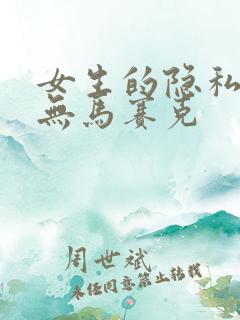 女生的隐私
無馬赛克
周世斌
未经同意禁止转载